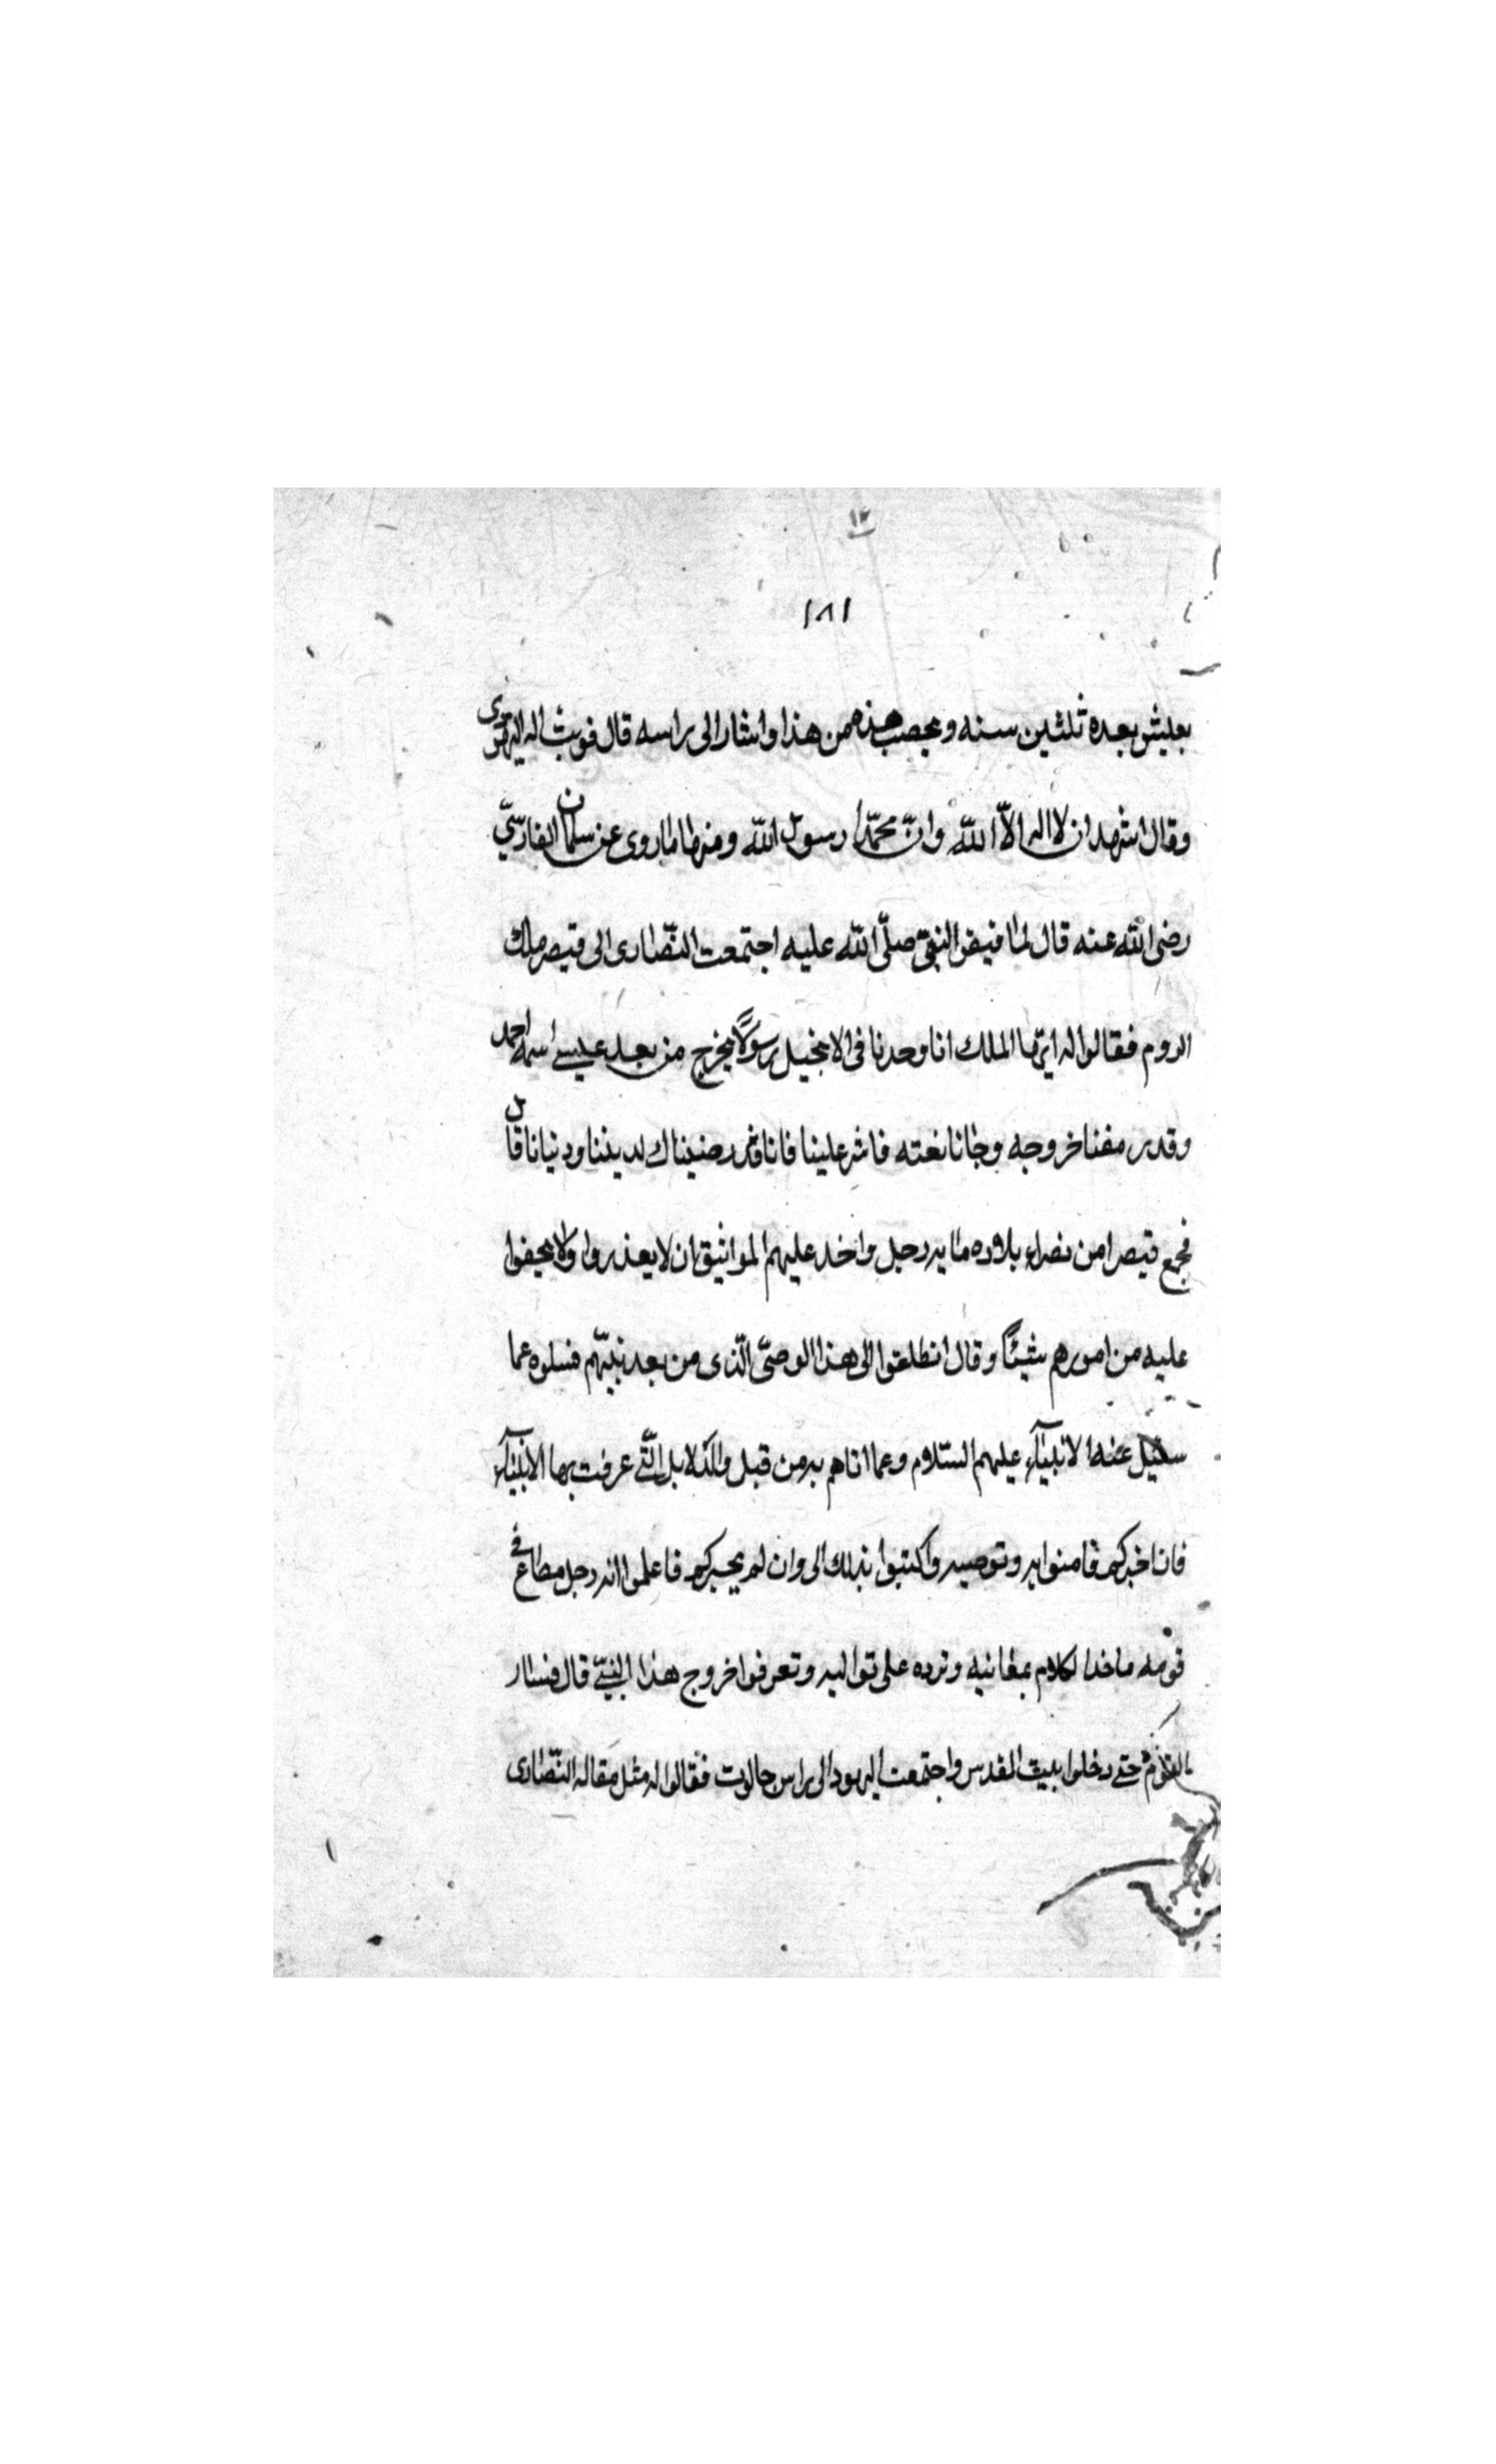 ١٢
١٨١
يعيش بعده ثلثين سنه و يخصب هذه من هذا واشار الى راسه قال فوثب اليه اليهودى
وقال اشهد ان لا اله الاّ اللّه وانّ محمّدا رسول اللّه ومنها ماروى عن سلمان الفارسىّ
رضى اللّه عنه قال لما قبض النبىّ صلّى اللّه عليه اجتمعت النّصارى الى قيصر ملك
الروم فقالوا له ايّها الملك انا وجدنا فى الانجيل رسولاً يخرج من بعد عيسى اسمه احمد
وقد رمقنا خروجه وجانا نعته فاشر علينا فانا قد رضيناك لديننا ودنيانا قال
فجمع قيصر من نصراء بلاده مايه رجل واخد عليهم المواثيق ان لا يغدروا ولا يخفوا
عليه من امورهم شيئًا وقال انطلقوا الى هذا الوصىّ الّذى من بعد نبيّهم فسلوه عما
سئيل عنه الانبيآء عليهم السّلام وعما اتاهم به من قبل والدلايل الّتى عرفت بها الانبيآء
فان اخبركم فامنوا به و توصيه واكتبوا بذلك الى وان لم يخبركم فاعلموا انه رجل مطاع فى
قومه ماخدا لكلام بمعانيه و ترده على تواليه و تعرفوا خروج هذا النبىّ قال فسار
القوم حتى دخلوا بيت المقدس واجتمعت اليهود الى راس جالوت فقالوا له مثل مقاله النّصارى